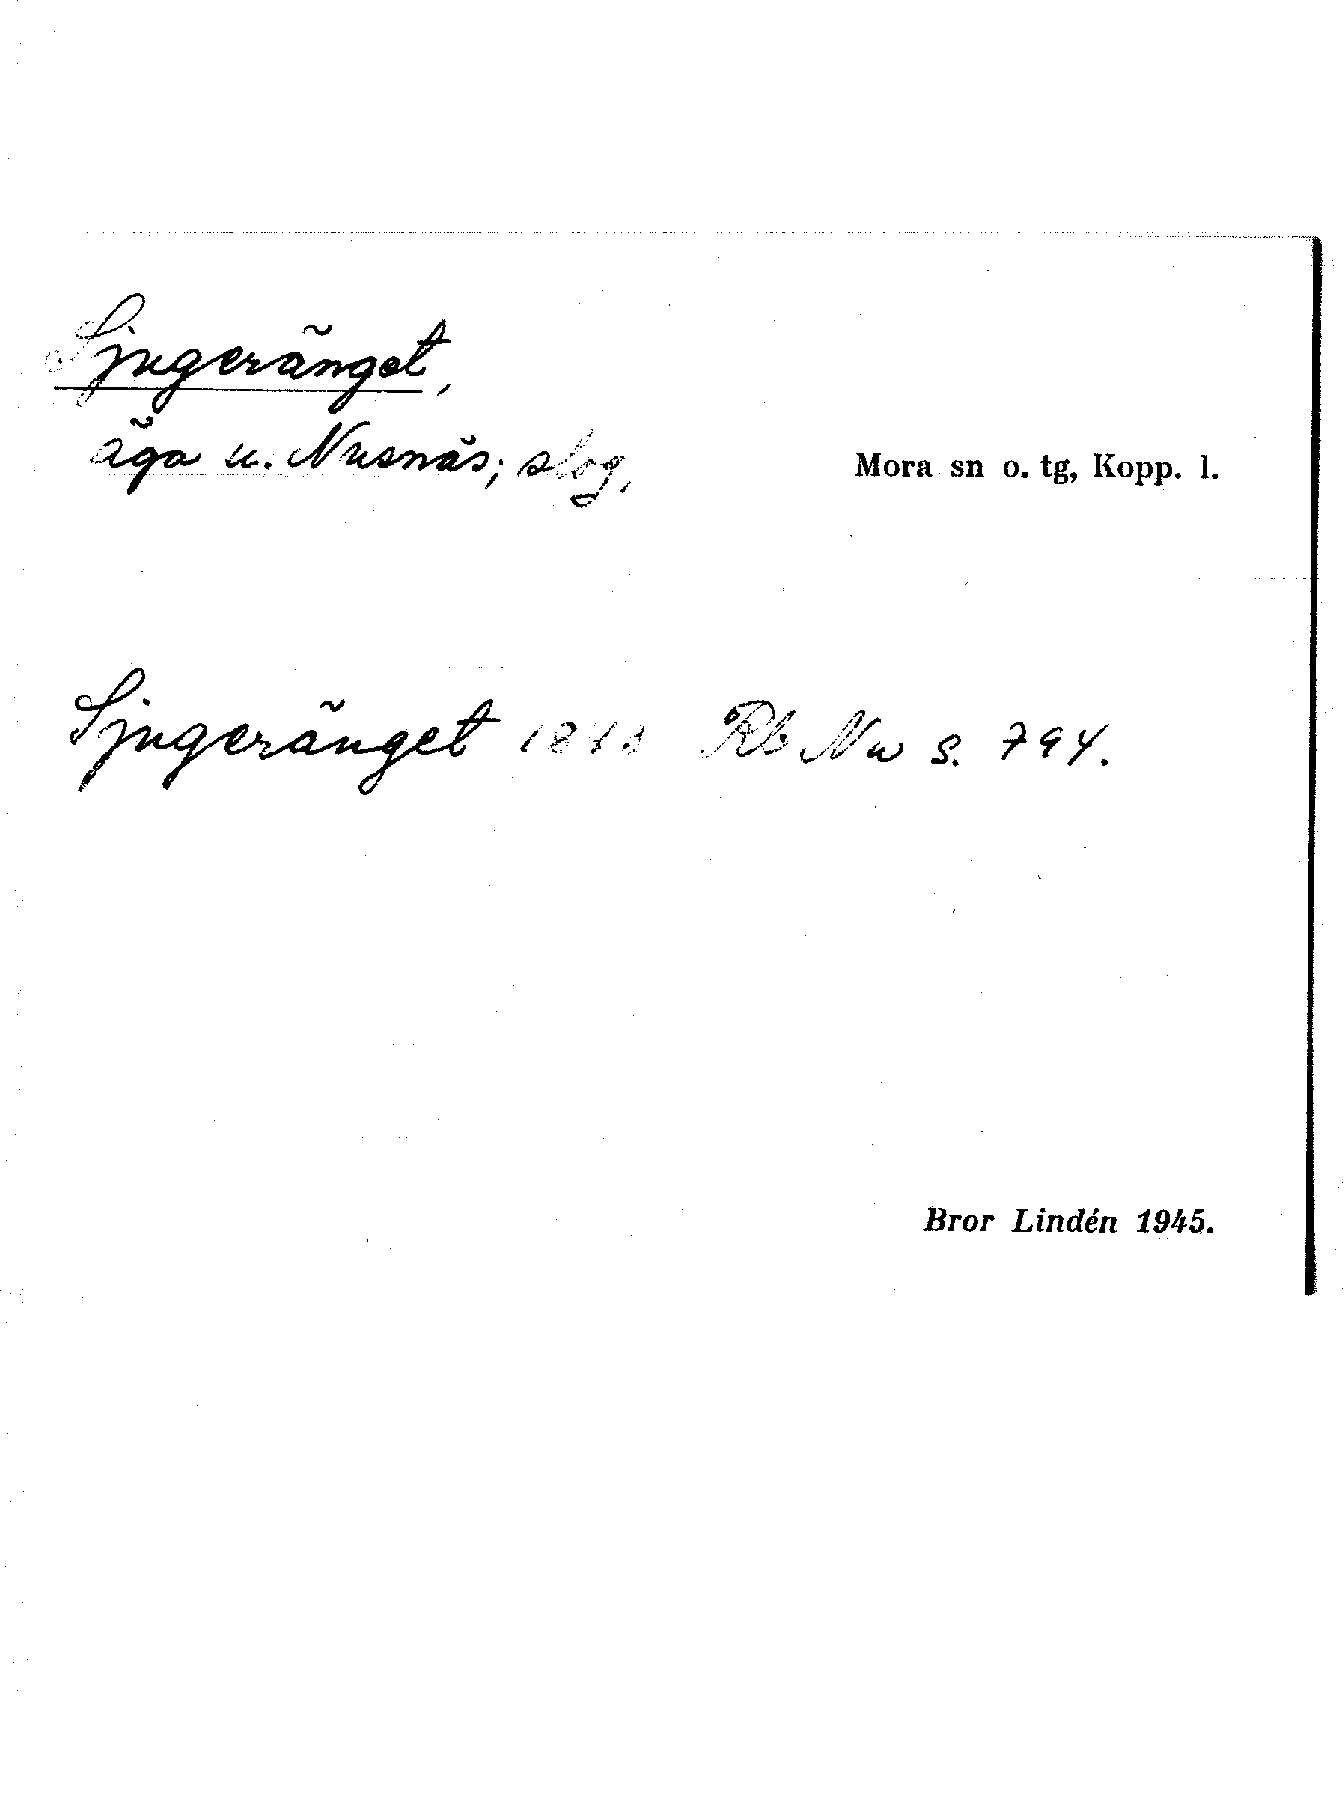 Sjugeränget,
äga u. Nusnäs; slog,
Mora sn o. tg, Kopp. l.
Sjugeränget 1843 Rb Nu s. 794.
Bror Lindén 1945.